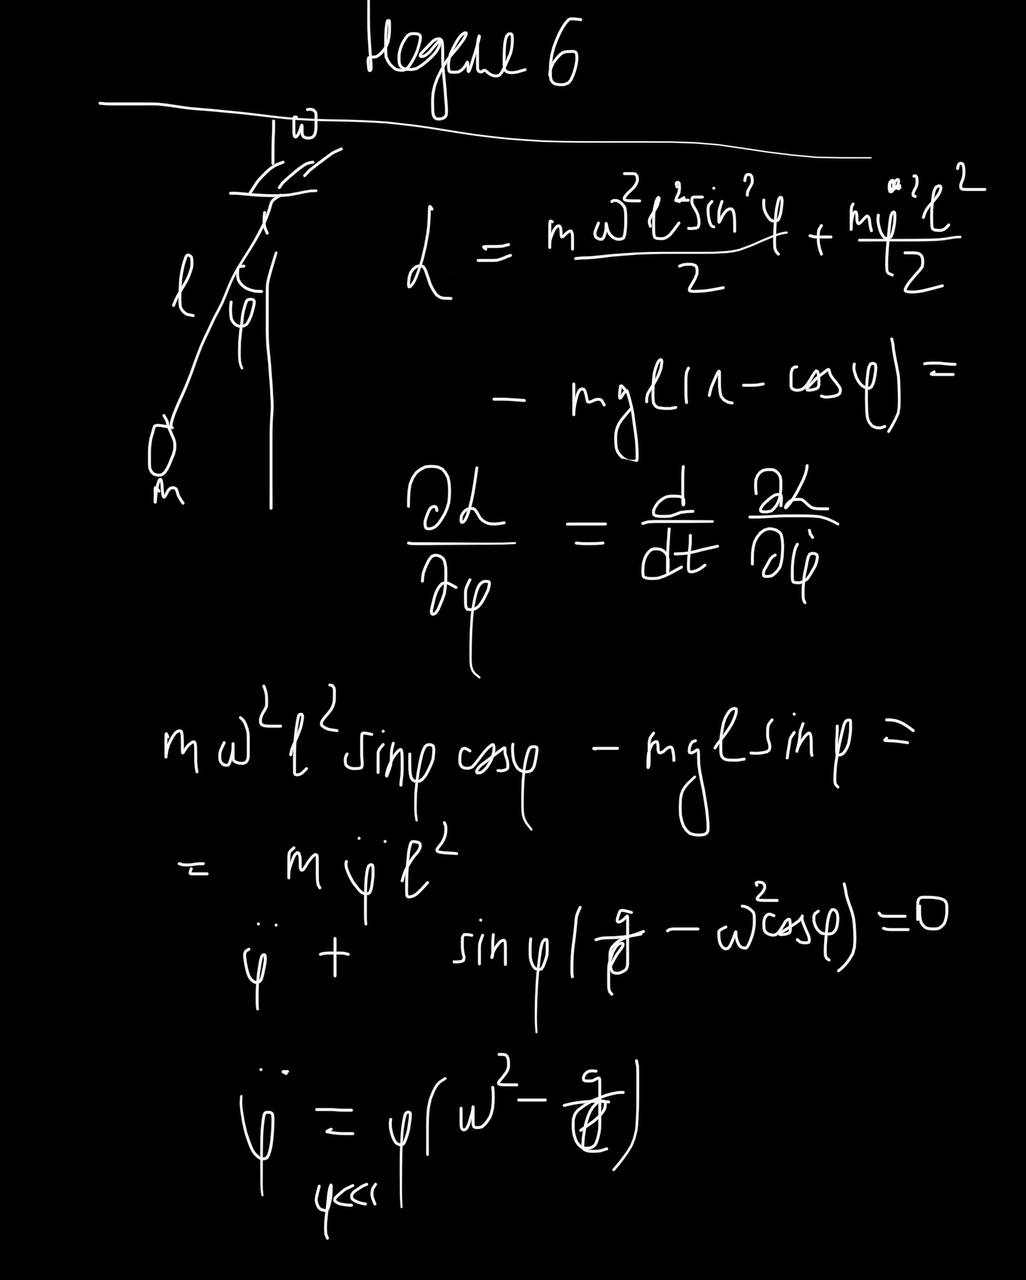 Неделя 6
ω
l
φ
m
L = mω²l²sin²φ/2 + mφ̇²l²/2
- mgl(1 - cosφ) =
∂L/∂φ = d/dt ∂L/∂φ̇
mω²l²sinφ cosφ - mgl sinφ =
= mφ̈l²
φ̈ + sinφ(g/l - ω²cosφ) = 0
φ̈ = φ(ω² - g/l)
φ<<<